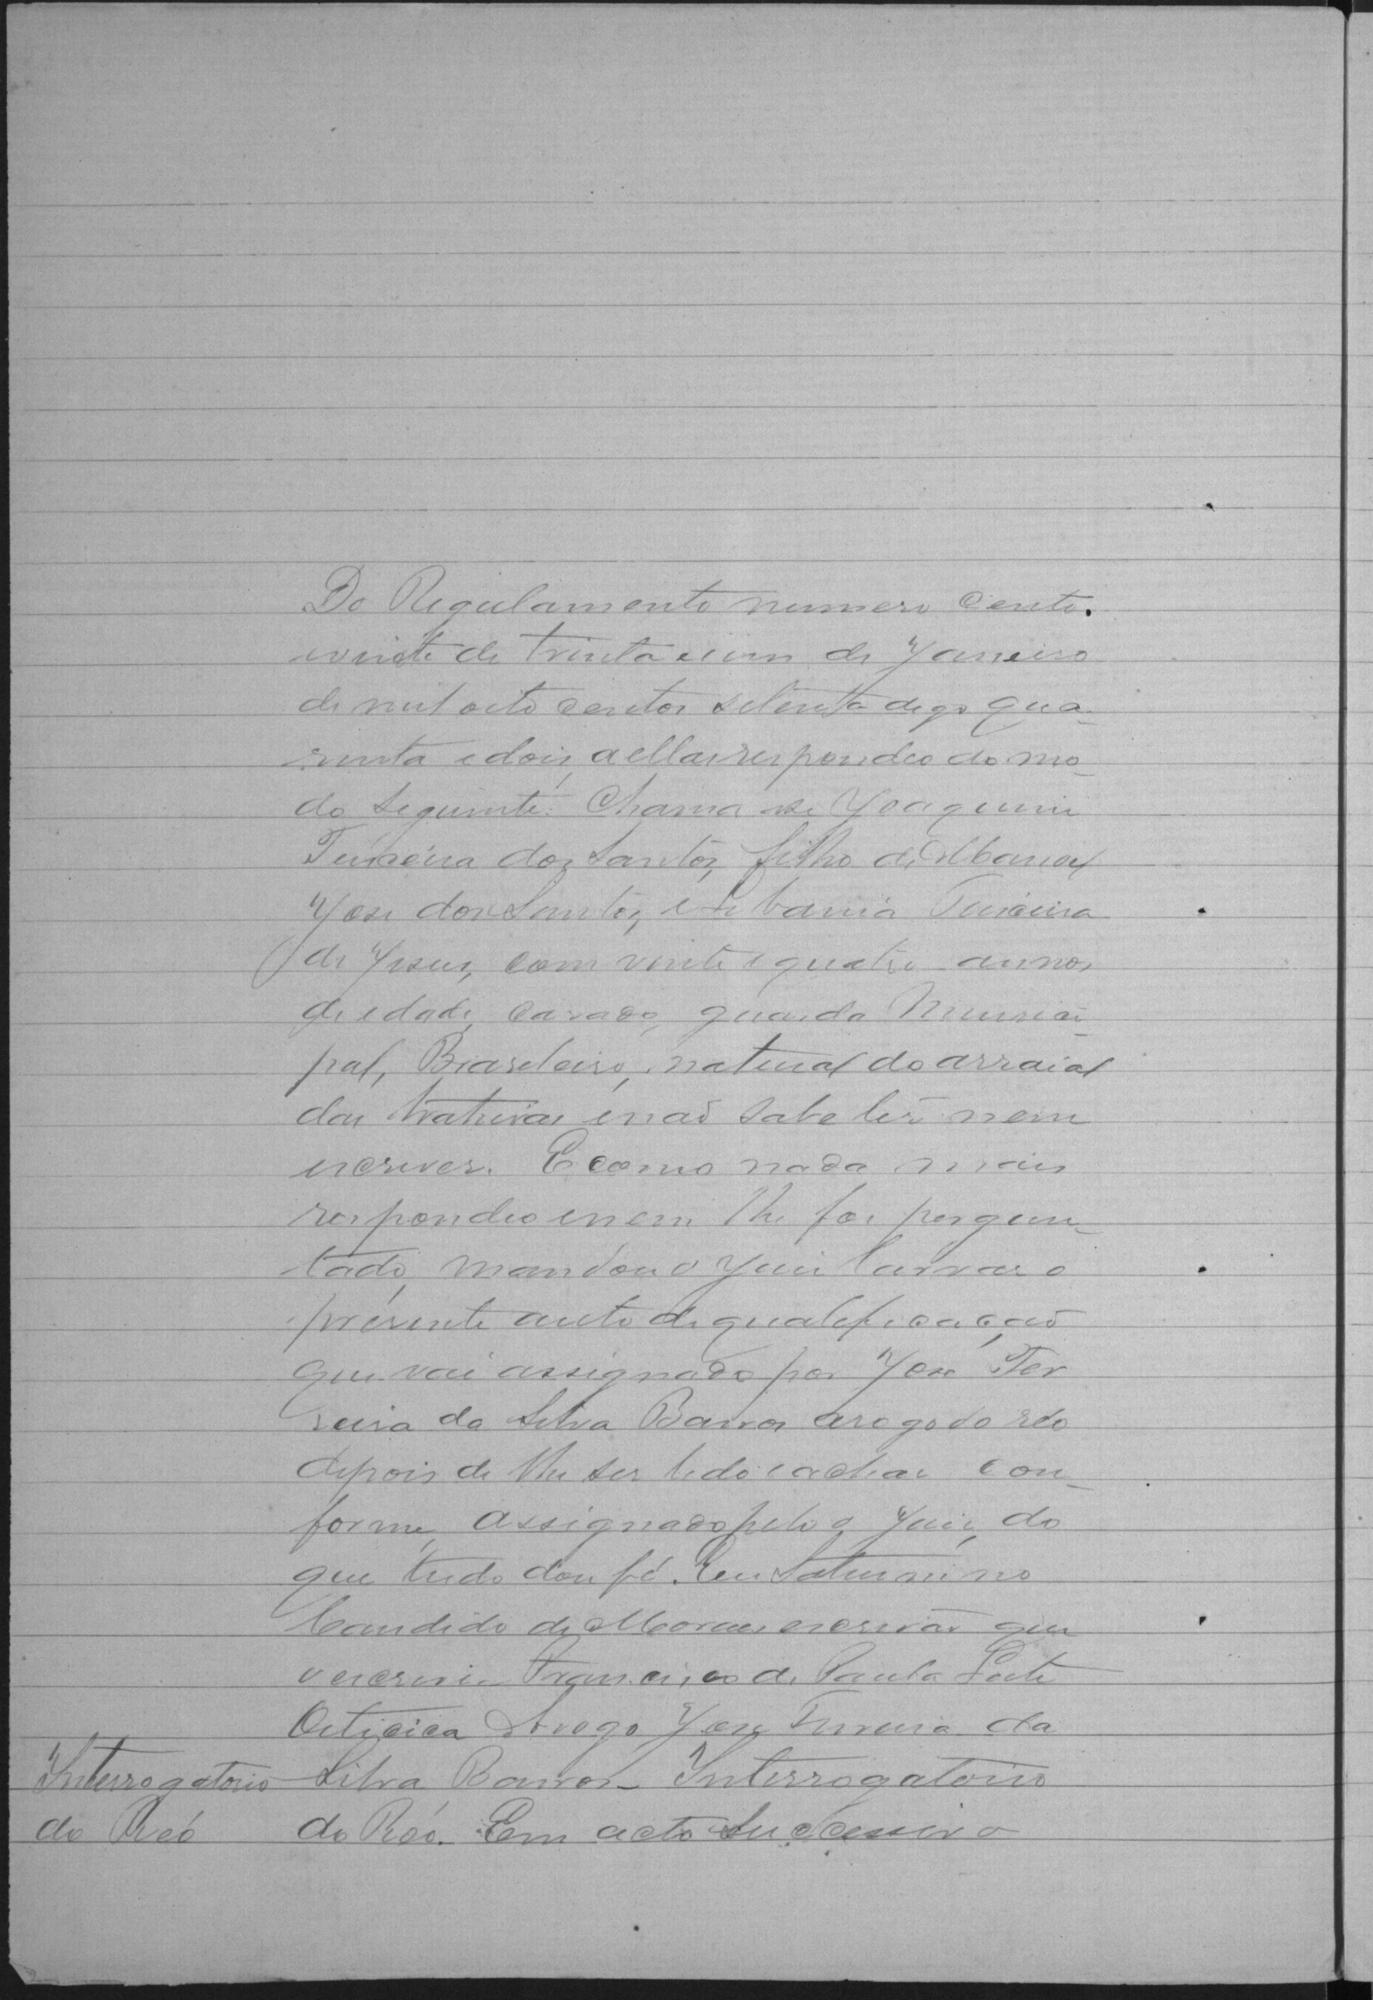 Do Regulamento numero cento.
evinte de trinta e um de Janeiro
de mil oito centos setenta digo qua-
renta e dois, a ellas respondeo do mo-
do seguinte: Chama-se Joaquim
Teixeira dos Santos, filho de Manoel
Jose dos Santos, e Teixeira
de Jesus, com vinte e quatro annos
de edade, casado, guarda Munici-
pal, Brasileiro, natural do arraial
das e não sabe ler nem
escrever. E como nada mais
respondeo e nem lhe foi pergun-
tado, mandou o Juiz lavrar o
presente auto de qualificação
que vai assignado por Jose Fer
reira da Silva Barros a rogo do réo
depois de lhe ser lido e achar con-
forme, assignado pelo Juiz, do
que tudo dou fé. Eu Saturnino
Candido de Moraes escrivão que
o escrevi. Francisco de Paula Leite
Oiticica A rogo Jose Ferreira da
Interrogatorio
do Reó
Silva Barros - Interrogatorio
do Reó. Em acto successivo